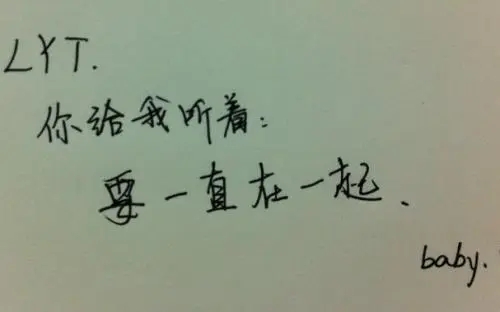 LYT.
你给我听着:
要一直在一起、
baby.